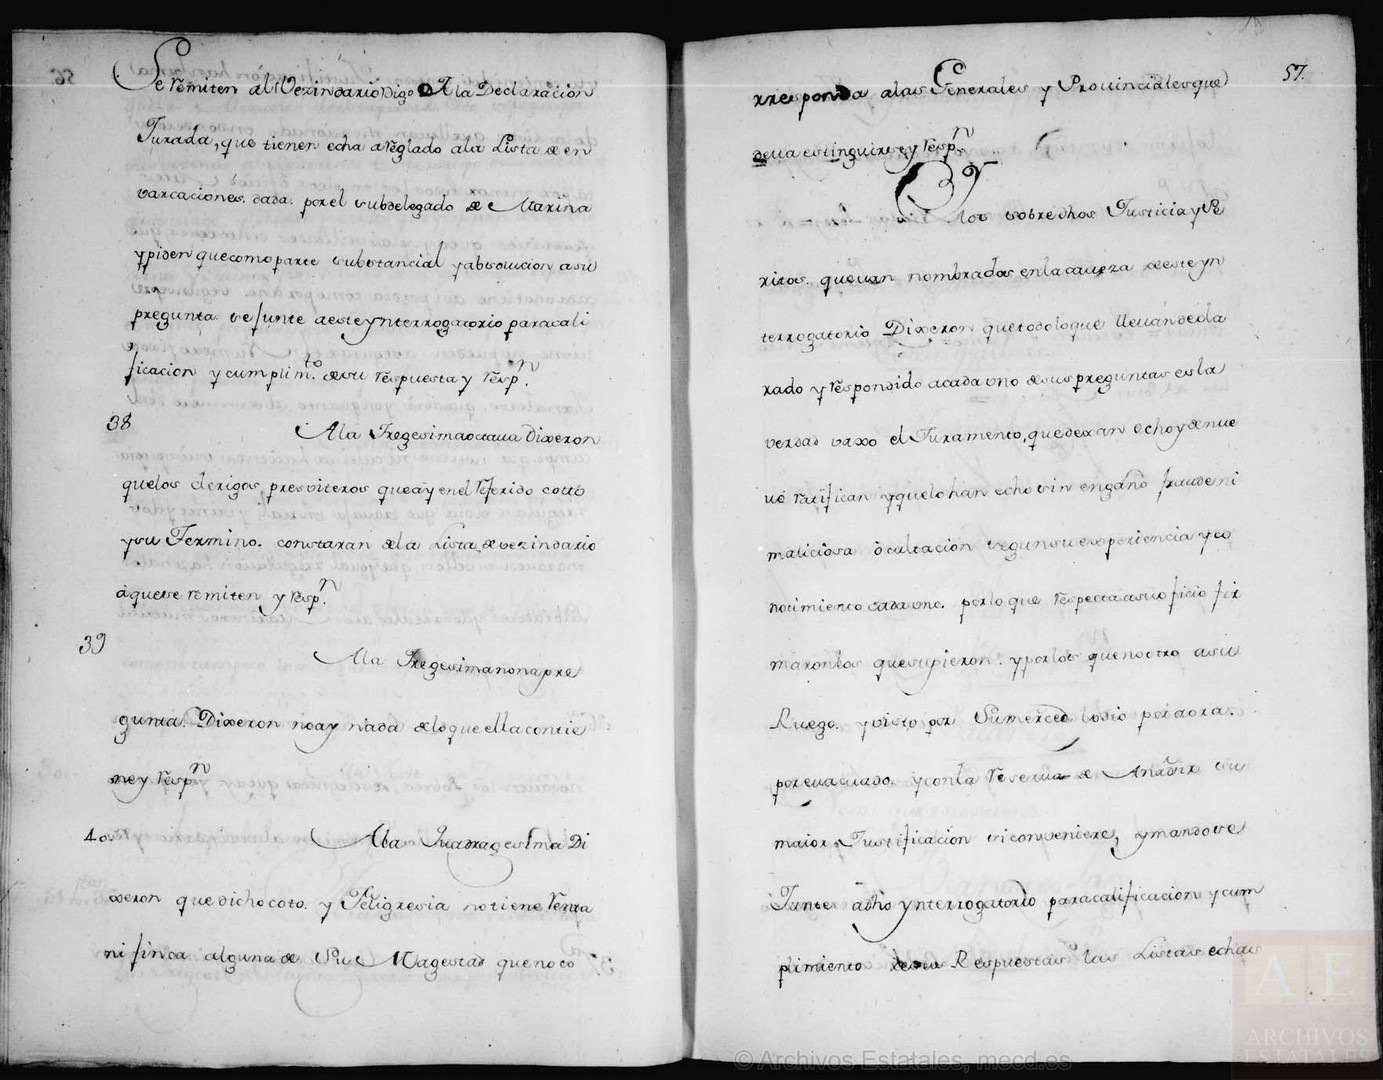 Se remiten al Vezindario Digo A la Declaracion
Jurada, que tienen echa areglado ala Lista de en
varcaciones. dada. por el subdelegado de Marina
y piden que como parte substancial y absolucion asu
pregunta. se junte a este Ynterrogatorio para cali
ficacion y cumplim.to de su respuesta y resp.n
38
A la Tregesima octaua Dixeron
que los clerigos, presviteros que ay en el referido coto
y su Termino. constaran de la Lista de vezindario
a que se remiten y resp.n
39
A la Tregesima nona pre
gunta. Dixeron no ay nada de lo que ella contie
ne y resp.n
40
A la Quadragesima Di
xeron que dicho coto. y Feligresia no tiene Renta
ni finca alguna de Su Magestad que no co
57.
rresponda a las Generales y Prouinciales que
deua estinguirse y resp.n
Y
los sobredhos Justicia y Pe
ritos. que van nombrados en la caueza de este yn
terrogatorio Dixeron que todo lo que lleuan decla
rado y respondido a cada uno de sus preguntas es la
verdad vaxo el Juramento, que dexan echo y de nue
uo ratifican y que lo han echo sin engaño fraude ni
maliciosa ocultacion segun su experiencia y co
nocimiento cada uno. por lo que respecta asu oficio fir
maronlos que supieron. y por los que no otro a su
Ruego. y visto por Sumerced lo dio por aora.
por euacuado. y con la reserua de Añadir su
maior Justificacion si conveniere, y mando se
Junte a dho Ynterrogatorio para calificacion y cum
plimiento de su Respuestas las Listas echas
© Archivos Estatales, mecd.es
A E
ARCHIVOS
ESTATALES